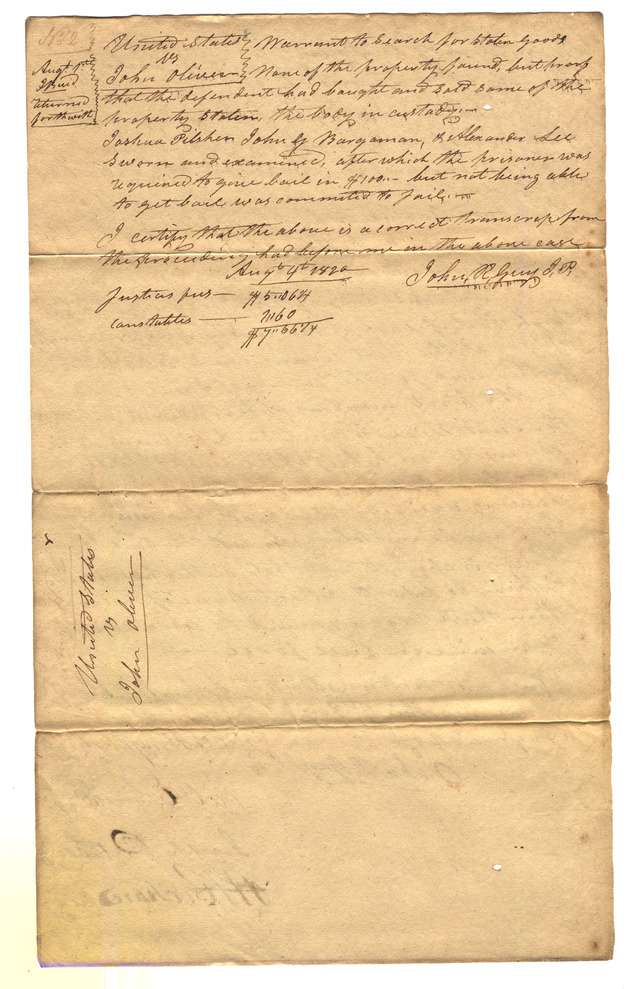 No 2
Augt 1st
Issued
returned
forthwith
United States
vs
John Oliver
Warrant to Search for Stolen Goods
None of the property found, but proof
that the defendent had bought and sold some of the
property Stolen, the body in custody.—
Joshua Pilcher John G Bargaman, & Alexander Lee
Sworn and examined, after which the prisoner was
required to give bail in $100.— but not being able
to get bail was commited to Jail.—
I certify that the above is a correct transcrap from
the proceeding had before me in the above case
Augt 4th 1820
John R Guy J. P.
Justices fees — $5"06¼
Constables — 2"60
$7"66¼
United States
vs
John Oliver